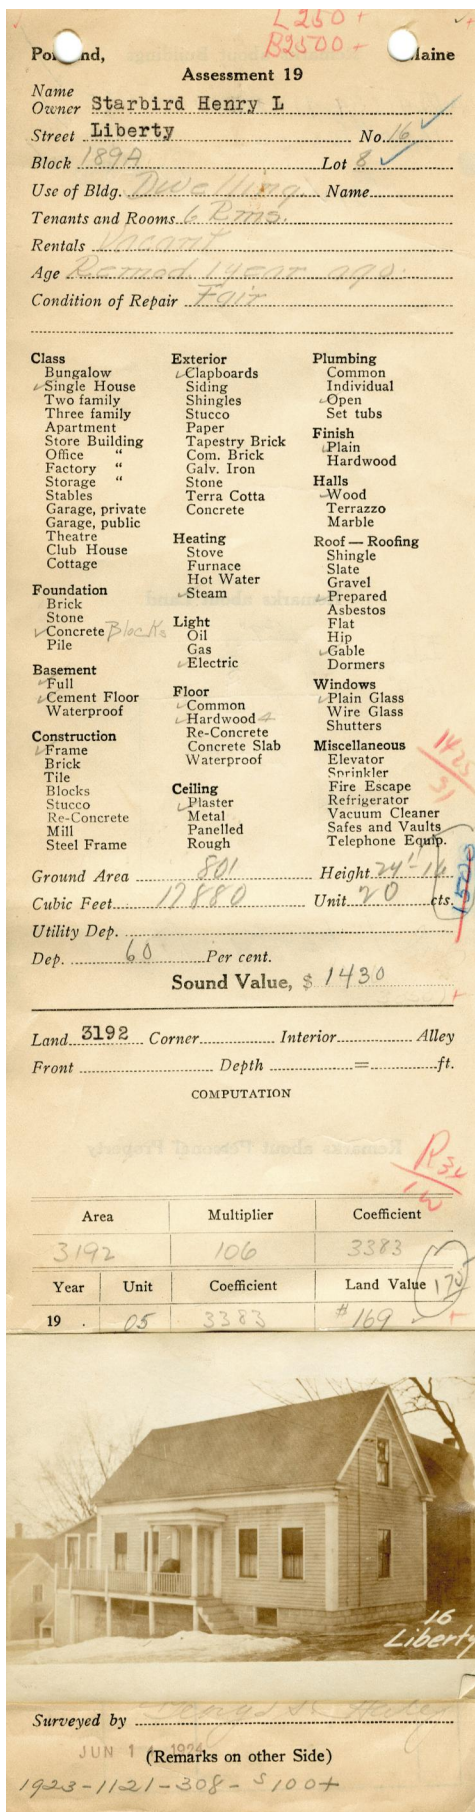 L 250 +
B2500 +
Po nd, Maine
Assessment 19
Name
Owner Starbird Henry L
Street Liberty No. 16
Block 189A Lot 8
Use of Bldg. Dwelling Name
Tenants and Rooms 6 Rms.
Rentals Vacant
Age Remod 1 year ago.
Condition of Repair Fair
Class
Bungalow
Single House
Two family
Three family
Apartment
Store Building
Office "
Factory "
Storage "
Stables
Garage, private
Garage, public
Theatre
Club House
Cottage
Foundation
Brick
Stone
Concrete Blocks
Pile
Basement
Full
Cement Floor
Waterproof
Construction
Frame
Brick
Tile
Blocks
Stucco
Re-Concrete
Mill
Steel Frame
Exterior
Clapboards
Siding
Shingles
Stucco
Paper
Tapestry Brick
Com. Brick
Galv. Iron
Stone
Terra Cotta
Concrete
Heating
Stove
Furnace
Hot Water
Steam
Light
Oil
Gas
Electric
Floor
Common
Hardwood 4
Re-Concrete
Concrete Slab
Waterproof
Ceiling
Plaster
Metal
Panelled
Rough
Plumbing
Common
Individual
Open
Set tubs
Finish
Plain
Hardwood
Halls
Wood
Terrazzo
Marble
Roof — Roofing
Shingle
Slate
Gravel
Prepared
Asbestos
Flat
Hip
Gable
Dormers
Windows
Plain Glass
Wire Glass
Shutters
Miscellaneous
Elevator
Sprinkler
Fire Escape
Refrigerator
Vacuum Cleaner
Safes and Vaults
Telephone Equip.
1425
31
Ground Area 801 Height 24'-16
Cubic Feet 17880 Unit 20 cts.
Utility Dep.
Dep. 60 Per cent.
Sound Value, $ 1430
Land 3192 Corner Interior Alley
Front Depth = ft.
COMPUTATION
Area Multiplier Coefficient
3192 106 3383
Year Unit Coefficient Land Value
19 . 05 3383 $169
16
Liberty
Surveyed by
JUN 1 1924
(Remarks on other Side)
1923-1121-308-$100+